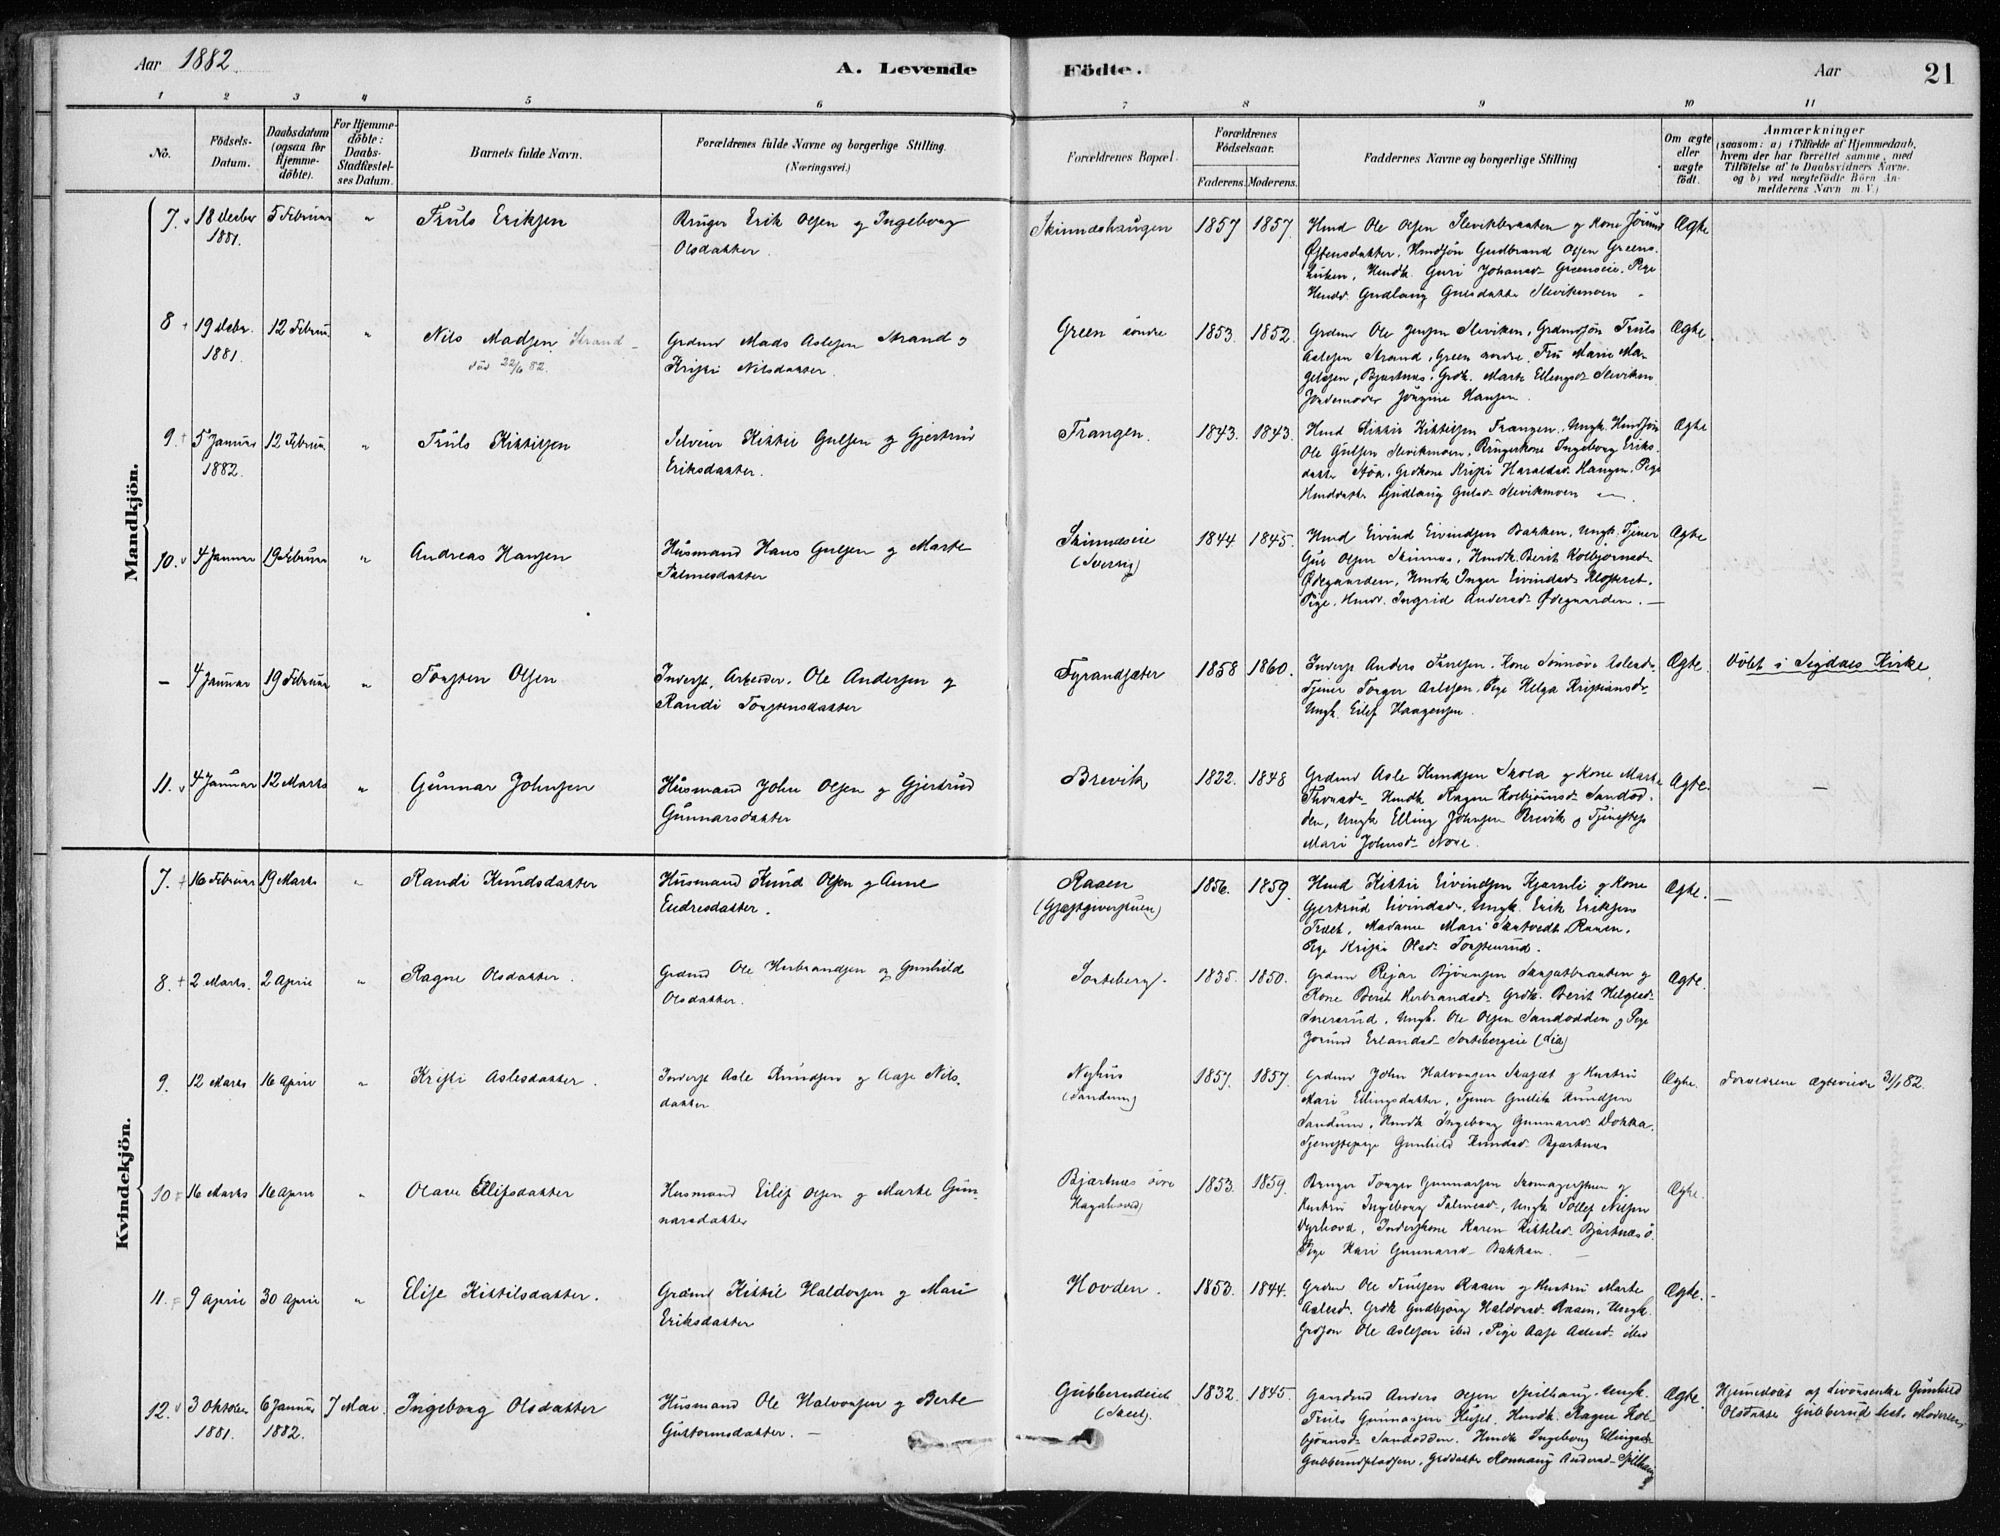 Aar 1882 A. Levende Födte. Aar 21
1 2 3 4 5 6 7 8 9 10 11
No. Födsels-Datum. Daabsdatum (ogsaa for Hjemme-döbte). For Hjemme-döbte: Daabs-Stadfæstel-ses Datum. Barnets fulde Navn. Forældrenes fulde Navne og borgerlige Stilling. (Næringsvei.) Forældrenes Bopæl. Forældrenes Födselsaar. Faderens. Moderens. Faddernes Navne og borgerlige Stilling Om ægte eller uægte födt. Anmærkninger (saasom: a) i Tilfælde af Hjemmedaab, hvem der har forrettet samme, med Tilföielse af to Daabsvidners Navne. og b) ved uægtefödte Börn An-melderens Navn m. V.)
Mandkjön.
7. 18 Decbr 1881. 5 Februar " Truls Eriksen
Bruger Erik Olsen og Ingeborg
Olsdatter.
Skinnæshaugen 1857 1857.
Hmd Ole Olsen Slevikbraaten og Kone Jörund
Østensdatter. Hmdsön Gudbrand Olsen Greens-
Hmdk. Guri Johansd- Greenseie. Pige
Hmdd. Gudlaug Gulsdatter Slevikmoen
Ægte
8 19 Decbr. 1881. 12 Februar " Nils Madsen Strand
död 22/6 82.
Grdmd Mads Aslesen Strand og
Kristi Nilsdatter.
Green söndre 1853. 1852.
Grdmd Ole Jensen Sleviken, Grdmdsön Truls
Aslesen Strand, Green nordre. Fru Marie Mar-
gelsen, Bjertnes, Grdk. Marte Ellingsd- Sleviken
Jordemoder Jörgine Hansen.
Ægte.
9. 5 Januar 1882. 12 Februar " Truls Kittilsen
Selveier Kittil Gulsen og Gjertrud
Eriksdatter.
Trangen. 1843. 1843.
Hmd Kittil Kittilsen Trangen. Ungk. Hmdsön
Ole Gulsen Slevikmoen, Brugerkone Ingeborg Eriks-
datter Grdkone Kristi Haraldsd- Haugen. Pige
Hmddatter Gudlaug Gulsd- Slevikmoen
Ægte
10. 4 Januar 19 Februar " Andreas Hansen
Husmand Hans Gulsen og Marte
Palmesdatter
Skinnæseie 1844 1845.
Hmd Eivind Eivindsen Bakken, Ungk. Tjener
Gul Olsen Skinnes, Hmdk. Berit Kolbjørnsd-
Ødegaarden, Hmdk Inger Eivindsd- Klosteret.
Pige. Hmdd. Ingrid Andersd- Ødegaarden.
Ægte
- 4 Januar 19 Februar " Torsten Olsen
Inderst, Arbeider. Ole Andersen og
Randi Torstensdatter
Tyrandsæter 1858 1860.
Inderst Anders Kone Sönnöve Aslesd-
Tjener Torger Aslesen, Pige Helga Kristiansdr
Ungk. Eilef Haagensen.
Ægte. Döbt i Sigdals Kirke.
11. 4 Januar 12 Marts " Gunnar Johnsen
Husmand John Olsen og Gjertrud
Gunnarsdatter
Brevik 1822. 1848
Grdmd Asle Knudsen og Kone Marte
Hmdk Ragne Kolbjörnsd- Sandod-
den, Ungk Elling Johnsen Brevik og Tjenestep
Mari Johnsd- Nore.
Ægte. -
Kvindekjön.
7. 16 Februar 19 Marts " Randi Knudsdatter
Husmand Knud Olsen og Anne
Endresdatter.
Raaen (Gjæstgiverstuen) 1856. 1859.
Hmd Kittil Eivindsen Kjærnli og Kone
Gjertrud Eivindsd. Ungk. Erik Eriksen
Træet, Madame Mari Raaen.
Pige Kristi Olsd- Torstenrud.
Ægte. -
8. 2 Marts. 2 April " Ragne Olsdatter.
Grdmd Ole Herbrandsen og Gunhild
Olsdatter.
Sorteberg. 1835. 1850.
Grdmd Reiar Björnsen Skasetbraaten og
Kone Berit Herbrandsd- Grdk. Berit Helgesd-
Ungk. Ole Olsen Sandodden og Pige
Jörund Erlandsd- Sortebergeie (Lia)
Ægte.
9. 12 Marts 16 April " Kristi Aslesdatter.
Inderst Asle Knudsen og Aase Nils-
datter
Nyhus (Sandum) 1857. 1857.
Grdmd John Halvorsen Skasæt og Hustru
Mari Ellingsdatter, Tjener Gullik Knudsen
Sandum, Hmdk Ingeborg Gunnarsd- Dokka.
Tjenestepige Gunhild Knudsd- Bjertnes
Ægte. Forældrene ægteviede 3/1 82.
10 16 Marts 16 April " Olave Eilifsdatter
Husmand Eilif Olsen og Marte Gun-
narsdatter
Bjertnes övre 1853. 1859.
Bruger Torger Gunnarsen Skomagerstuen og
Hustru Ingeborg Palmesd-, Ungk Tollef Nilsen
Dyrhovd, Inderstkone Karen Kittilsd- Bjertnes ö.
Pige Kari Gunnarsd- Bakken.
Ægte.
11. 9 April 30 April " Elise Kittilsdatter.
Grdmd Kittil Haldorsen og Mari
Eriksdatter
Hovden. 1853. 1844.
Grdmd Ole Trulsen Raaen og Hustru Marte
Aslesd. Grdk Gudbjörg Haldorsd- Raaen, Ungk.
Grdsön Ole Aslesen ibid, Pige Aase Aslesd- ibid
Ægte. -
12. 3 Oktober 1881. 6 Januar 1882. 7 Mai Ingeborg Olsdatter
Husmand Ole Halvorsen og Berte
Guttormsdatter.
Gubberudeie 1832. 1845.
Gaardmd Anders Olsen Spilhaug. Ungk.
Truls Gunnarsen Hmdk. Ragne Kol-
björnsd- Sandodden. Hmdk Ingeborg Ellingsd-
Gubberudpladsen, Grddatter Rønnaug Andersd- Spilhaug
Ægte. Hjemmedöbt af Livöiersenke Gunhild
Olsdatter Gubberud